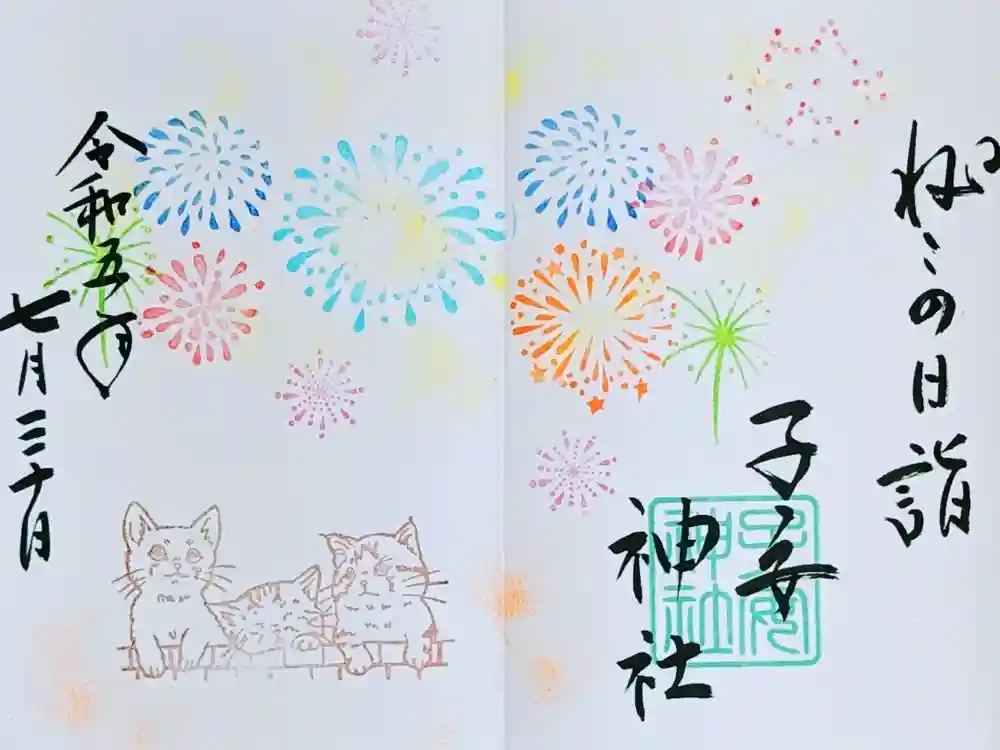 ねこの日詣
子安
神社
子安
神社
令和五年
七月三十日